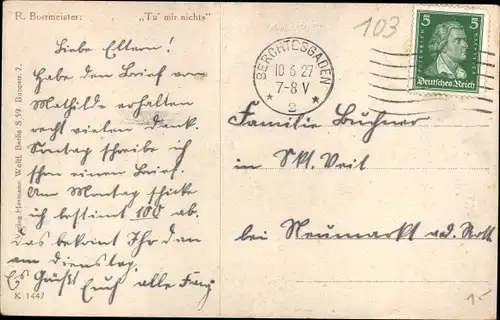 R. Borrmeister: „Tu' mir nichts"
Liebe Eltern!
Habe den Brief von
Mathilde erhalten
recht vielen Dank.
Sontag schreibe ich
schon einen Brief.
Am Montag schicke
ich bestimt 100 ab.
Das bekomt Ihr dan
am Dienstag.
Es Grüßt Euch alle
K 1447
Verlag Hermann Wolff, Berlin S 59, Boppstr. 7.
103
BERCHTESGADEN
10 6 27
7-8 V
* 2 *
5 5
FRIEDRICH SCHILLER
Deutsches Reich
Familie Buchner
in Skt. Veit
bei Neumarkt a.d. Rott
1.-